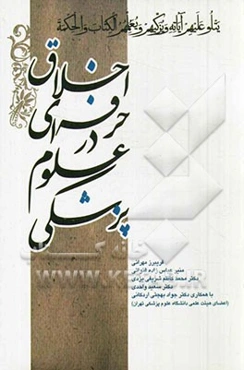 یتلو علیهم آیاته و یزکیهم و یعلمهم الکتاب والحکمة
اخلاق
حرفه‌ای
در
علوم
پزشکی
فریبرز مهرانی
منیر عباس زاده
دکتر محمد کاظم شریفی یزدی
دکتر سعید واحدی
با همکاری دکتر جواد بهجتی اردکانی
(اعضای هیئت علمی دانشگاه علوم پزشکی تهران)